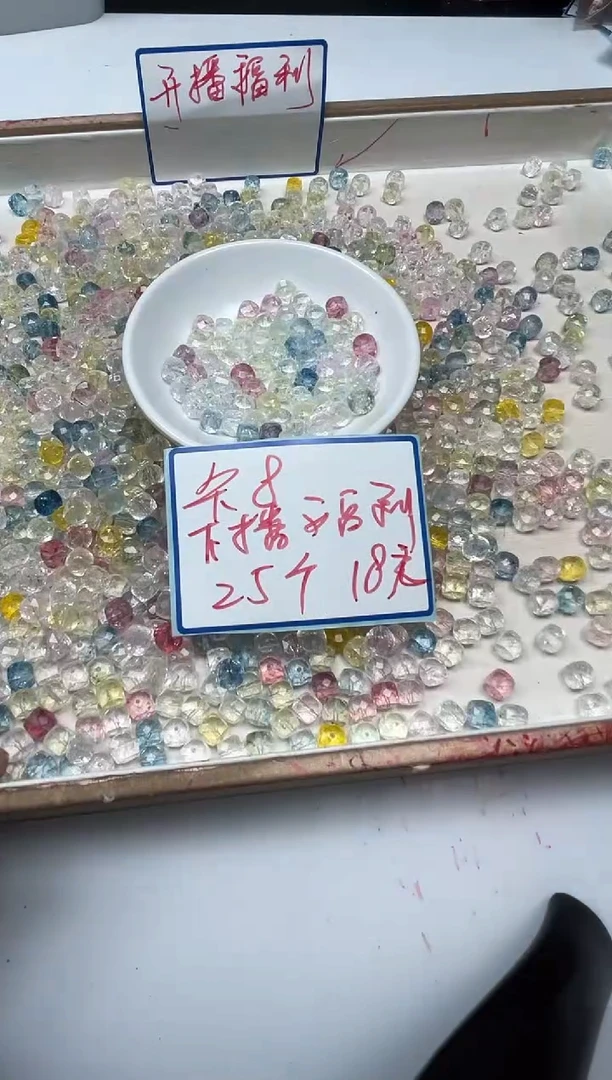 开播福利
杂8
下播福利
25个 18元